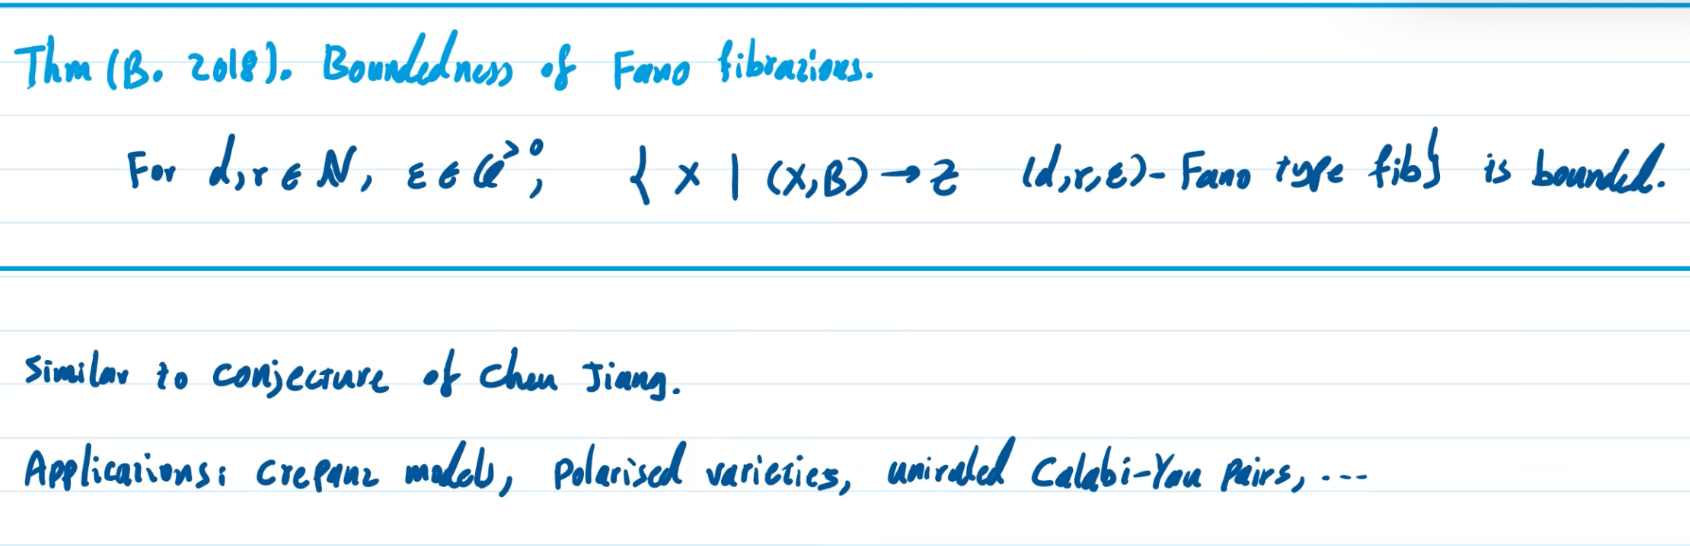 Thm (B. 2018). Boundedness of Fano fibrations.
For d,r ∈ ℕ, ε ∈ ℚ^{>0}, { X | (X,B) → Z (d,r,ε)-Fano type fib} is bounded.
Similar to conjecture of Chen Jiang.
Applications: crepant models, polarised varieties, uniruled Calabi-Yau pairs, ...